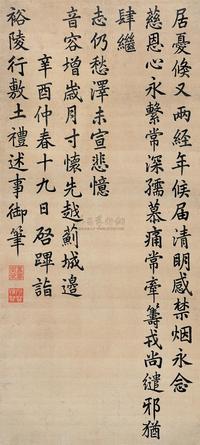 居憂倏又兩經年候届清明感禁烟永念
慈恩心永繫常深孺慕痛常牽籌戎尚繾邪猶
肆繼
志仍愁澤未宣悲憶
音容增歲月寸懷先越薊城邊
辛酉仲春十九日啓蹕詣
裕陵行敷土禮述事御筆